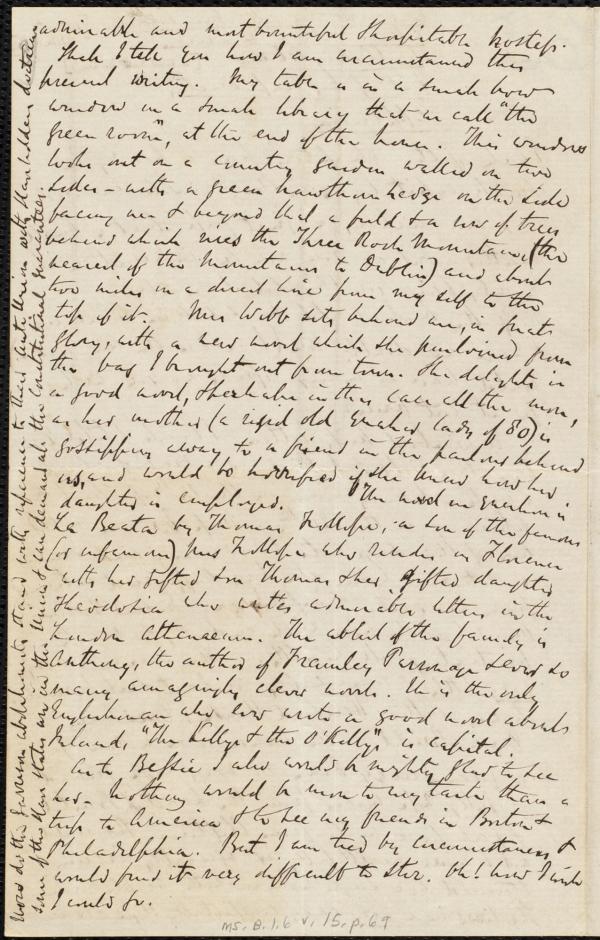 admirable and most bountiful & hospitable hostess.
Shall I tell you how I am circumstanced this
present writing. My table is in a small bow
window in a small library that we call "the
green room", at the end of the house. This window
looks out on a country garden walled on two
sides - with a green hawthorn hedge on the side
facing me & beyond that a field & a row of trees
behind which rises the Three Rock Mountain, (the
nearest of the mountains to Dublin) and about
two miles in a direct line from my self to the
top of it. Mrs Webb sits behind me, in great
glory, with a new novel which she purloined from
the bag I brought out from town. She delights in
a good novel, & she halve in this case all the more,
as her mother (a rigid old Quaker lady of 80) is
gossipping away, to a friend in the parlour behind
us, and would be horrified if she knew how her
daughter is employed. The novel in question is
La Beata by Thomas Trollope, a son of the famous
(or infamous) Mrs Trollope who resides in Florence
with her gifted son Thomas & her gifted daughter
Theodosia who writes admirable letters in the
London Athenaeum. The ablest of the family is
Anthony, the author of Framley Parsonage & ever so
many amazingly clever novels. He is the only
Englishman who ever wrote a good novel about
Ireland, "The Kellys & the O'Kellys" is capital.
As to Bessie I also would be mighty glad to see
her. Nothing would be more to my taste than a
trip to America & to see my friends in Boston &
Philadelphia. But I am tied by circumstances &
would find it very difficult to stir. Oh! how I wish
I could go.
How do the Garrison abolitionists stand with reference to their anti Union with slaveholders doctrines
some of the slave states are in the Union & can demand all the constitutional guarantees.
Ms. B.1.6 v.15, p.69